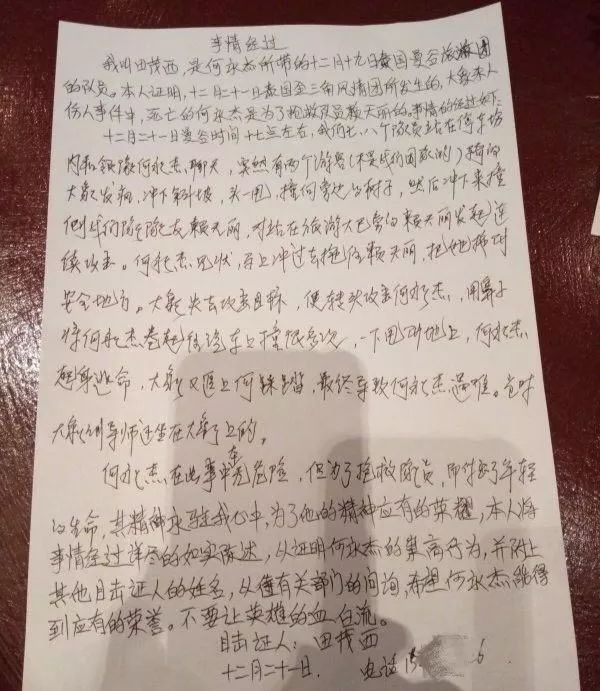 事情经过
我叫田茂西,是何永杰所带的十二月十九日泰国曼谷旅游团
的队员。本人证明,十二月二十一日泰国至三角风情团所发生的,大象杀人
伤人事件中,死亡的何永杰是为了抢救队员赖天丽的,事情的经过如下:
十二月二十一日曼谷时间十七点左右,我们七、八个队员站在停车场
内和领队何永杰聊天,突然有两个游客(不是我们团队的)骑的
大象发病,冲下斜坡,头一甩,撞向旁边的树子,然后冲下来撞
倒我们队队友赖天丽,对站在旅游大巴旁的赖天丽发起连
续攻击。何永杰见状,马上冲过去抱住赖天丽,把她推到
安全地方。大象失去攻击目标,便转头攻击何永杰,用鼻子
将何永杰卷起往汽车上撞很多次,一下甩到地上,何永杰
起身逃命,大象又追上何踩踏,最终导致何永杰遇难。当时
大象训导师还坐在大象上的。
何永杰在此事中无危险,但为了抢救队员,即付出了年轻
的生命,其精神永驻我心中,为了他的精神应有的荣耀,本人将
事情经过详尽的如实陈述,以证明何永杰的崇高行为,并附上
其他目击证人的姓名,以便有关部门的问询,希望何永杰能得
到应有的荣誉。不要让英雄的血白流。
目击证人:田茂西
十二月二十一日. 电话15 6.